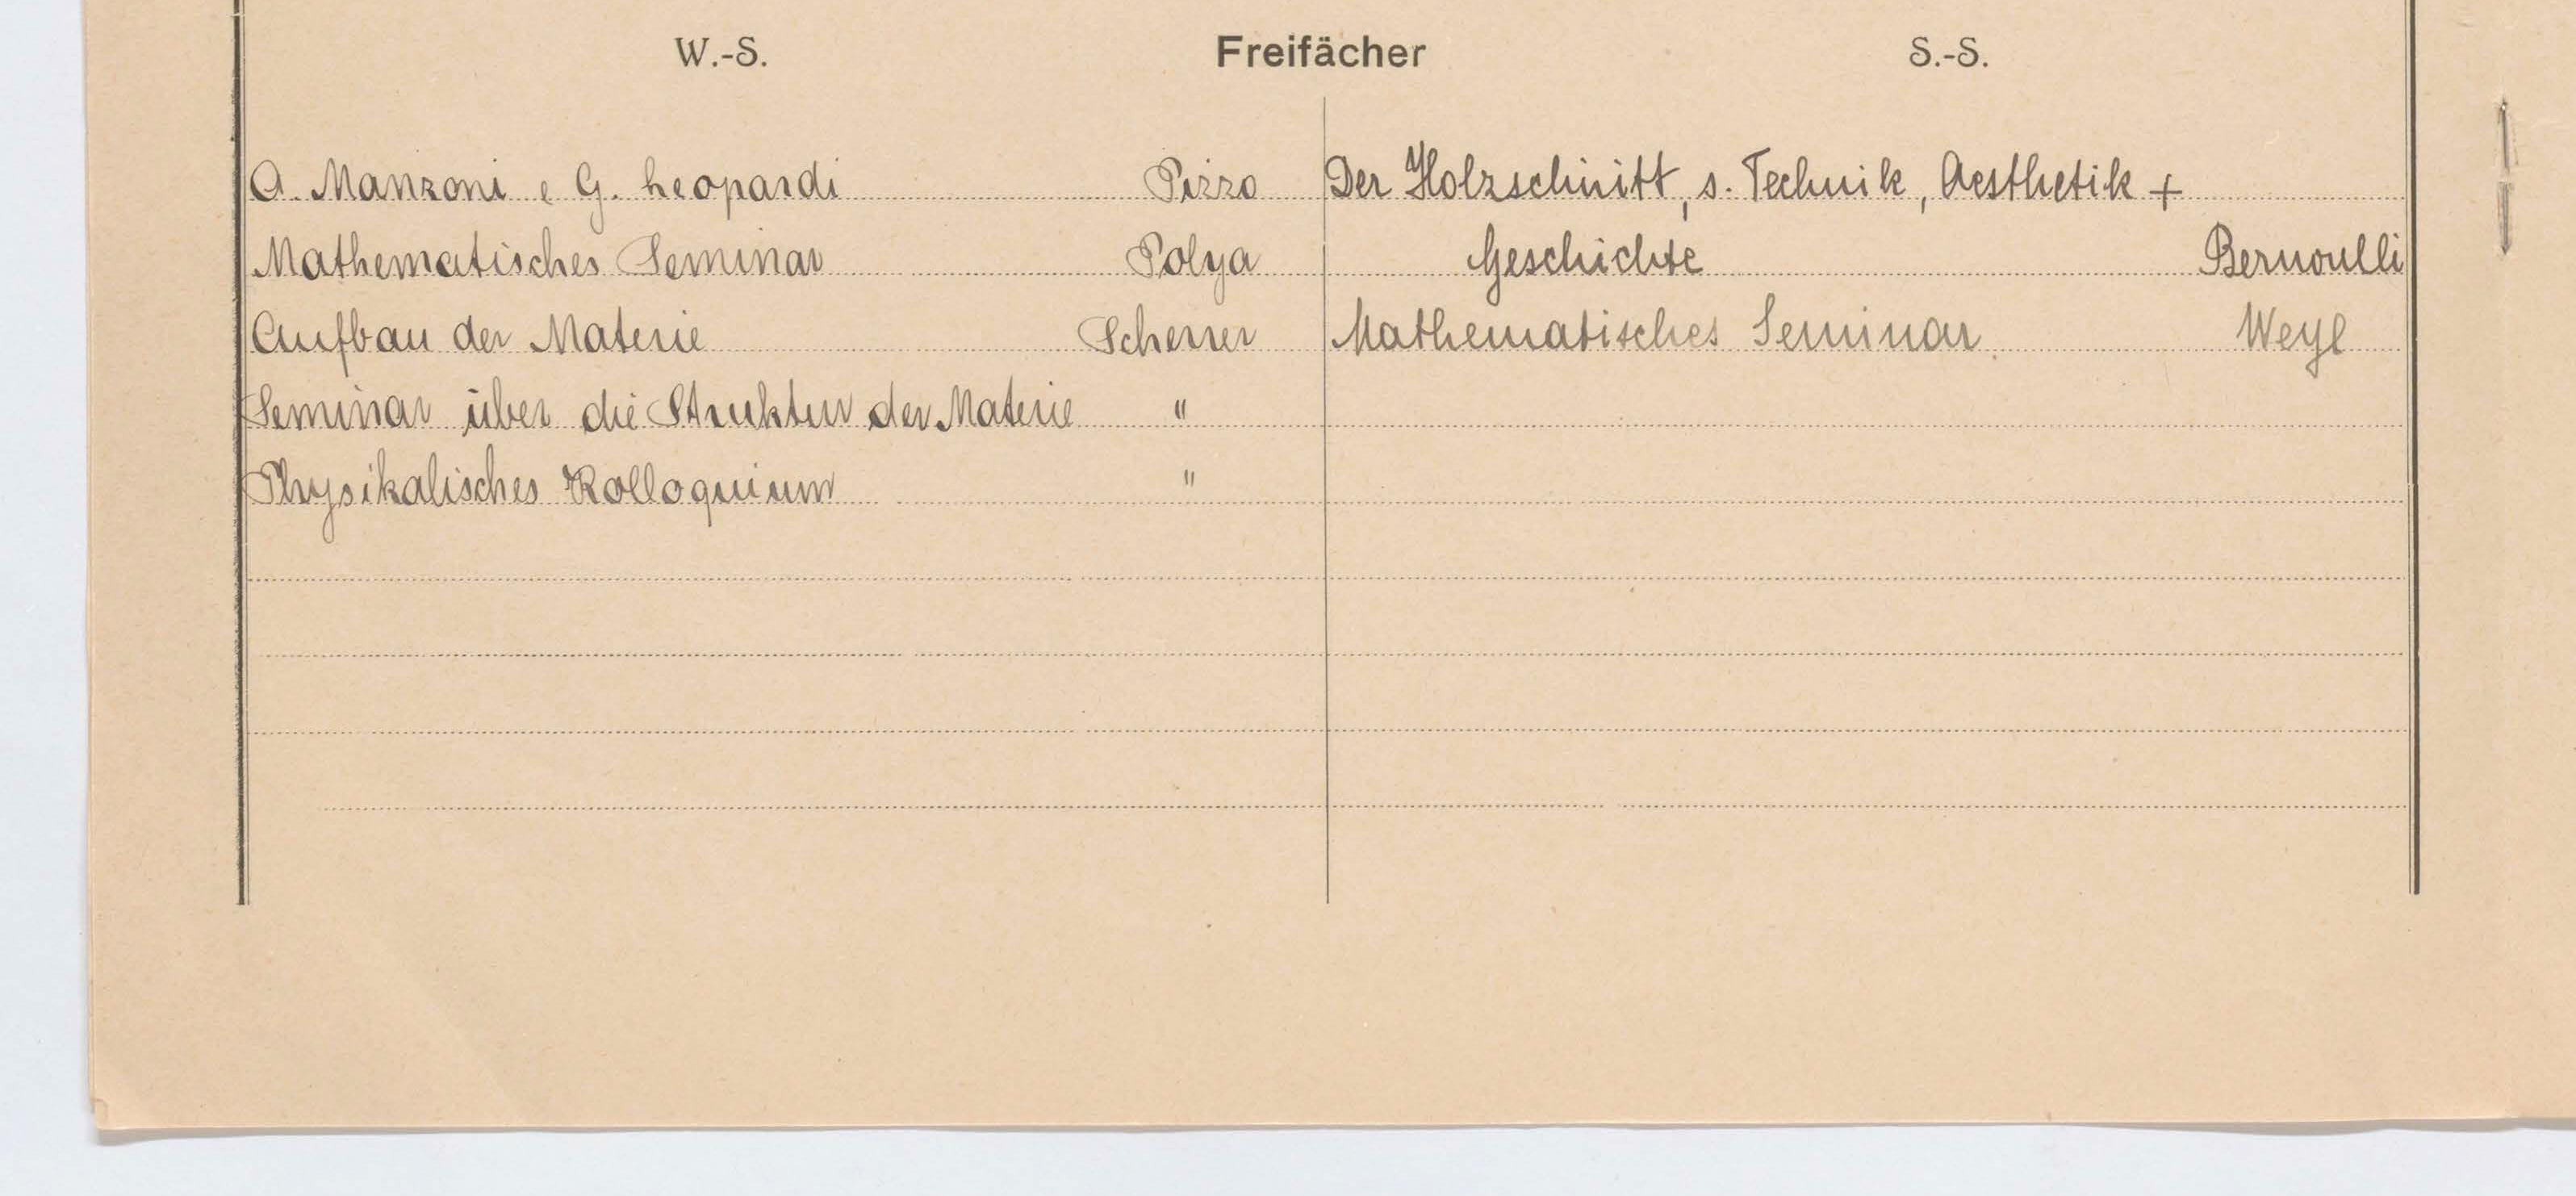 W.-S. Freifächer S.-S.
A. Manzoni e G. Leopardi Pizzo
Mathematisches Seminar Polya
Aufbau der Materie Scherrer
Seminar über die Struktur der Materie "
Physikalisches Kolloquium "
Der Holzschnitt, s. Technik, Aesthetik +
Geschichte Bernoulli
Mathematisches Seminar Weyl